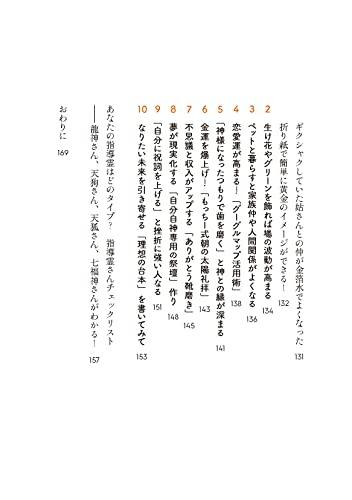 ギクシャクしていた姑さんとの仲が金箔水でよくなった 131
折り紙で簡単に黄金のイメージができる！ 132
2 生け花やグリーンを飾れば場の波動が高まる 134
3 ペットと暮らすと家族仲や人間関係がよくなる 136
4 恋愛運が高まる！「グーグルマップ活用術」 138
5 「神様になったつもりで歯を磨く」と神との縁が深まる 141
6 金運を爆上げ！「もっちー式朝の太陽礼拝」 143
7 不思議と収入がアップする「ありがとう靴磨き」 145
8 夢が現実化する「自分自神専用の祭壇」作り 148
9 「自分に祝詞を上げる」と挫折に強い人なる 151
10 なりたい未来を引き寄せる「理想の台本」を書いてみて 153
あなたの指導霊はどのタイプ？ 指導霊さんチェックリスト
――龍神さん、天狗さん、天狐さん、七福神さんがわかる！ 157
おわりに 169